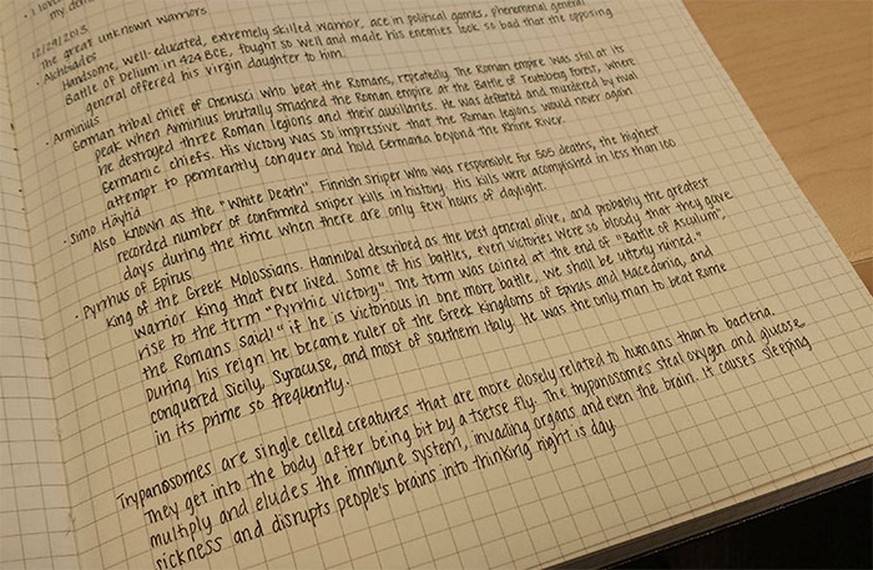 · i lov
my
12/29/2013
the great unknown warriors
· Alcibiades
Handsome, well-educated, extremely skilled warrior, ace in political games, phenomenal general
Battle of Delium in 424 BCE, fought so well and made his enemies look so bad that the opposing
general offered his virgin daughter to him.
· Arminius
German tribal chief of Cherusci who beat the Romans, repeatedly. The Roman empire was still at its
peak when Arminius brutally smashed the Roman empire at the Battle of Teutoberg Forest, where
he destroyed three Roman legions and their auxiliaries. He was defeated and murdered by rival
Germanic chiefs. His victory was so impressive that the Roman legions would never again
attempt to permeantly conquer and hold Germania beyond the Rhine River.
· Simo Häyhä
Also known as the "White Death". Finnish sniper who was responsible for 505 deaths, the highest
recorded number of confirmed sniper kills in history. His kills were acomplished in less than 100
days during the time when there are only few hours of daylight.
· Pyrrhus of Epirus
King of the Greek Molossians. Hannibal described as the best general alive, and probably the greatest
warrior King that ever lived. Some of his battles, even victories were so bloody that they gave
rise to the term "Pyrrhic victory". The term was coined at the end of "Battle of Asculum",
the Romans said! "if he is victorious in one more battle, we shall be utterly ruined."
During his reign he became ruler of the Greek Kingdoms of Epirus and Macedonia, and
conquered Sicily, Syracuse, and most of southern Italy. He was the only man to beat Rome
in its prime so frequently.
Trypanosomes are single celled creatures that are more closely related to humans than to bacteria.
They get into the body after being bit by a tsetse fly. The trypanosomes steal oxygen and glucose,
multiply and eludes the immune system, invading organs and even the brain. It causes sleeping
sickness and disrupts people's brains into thinking night is day.